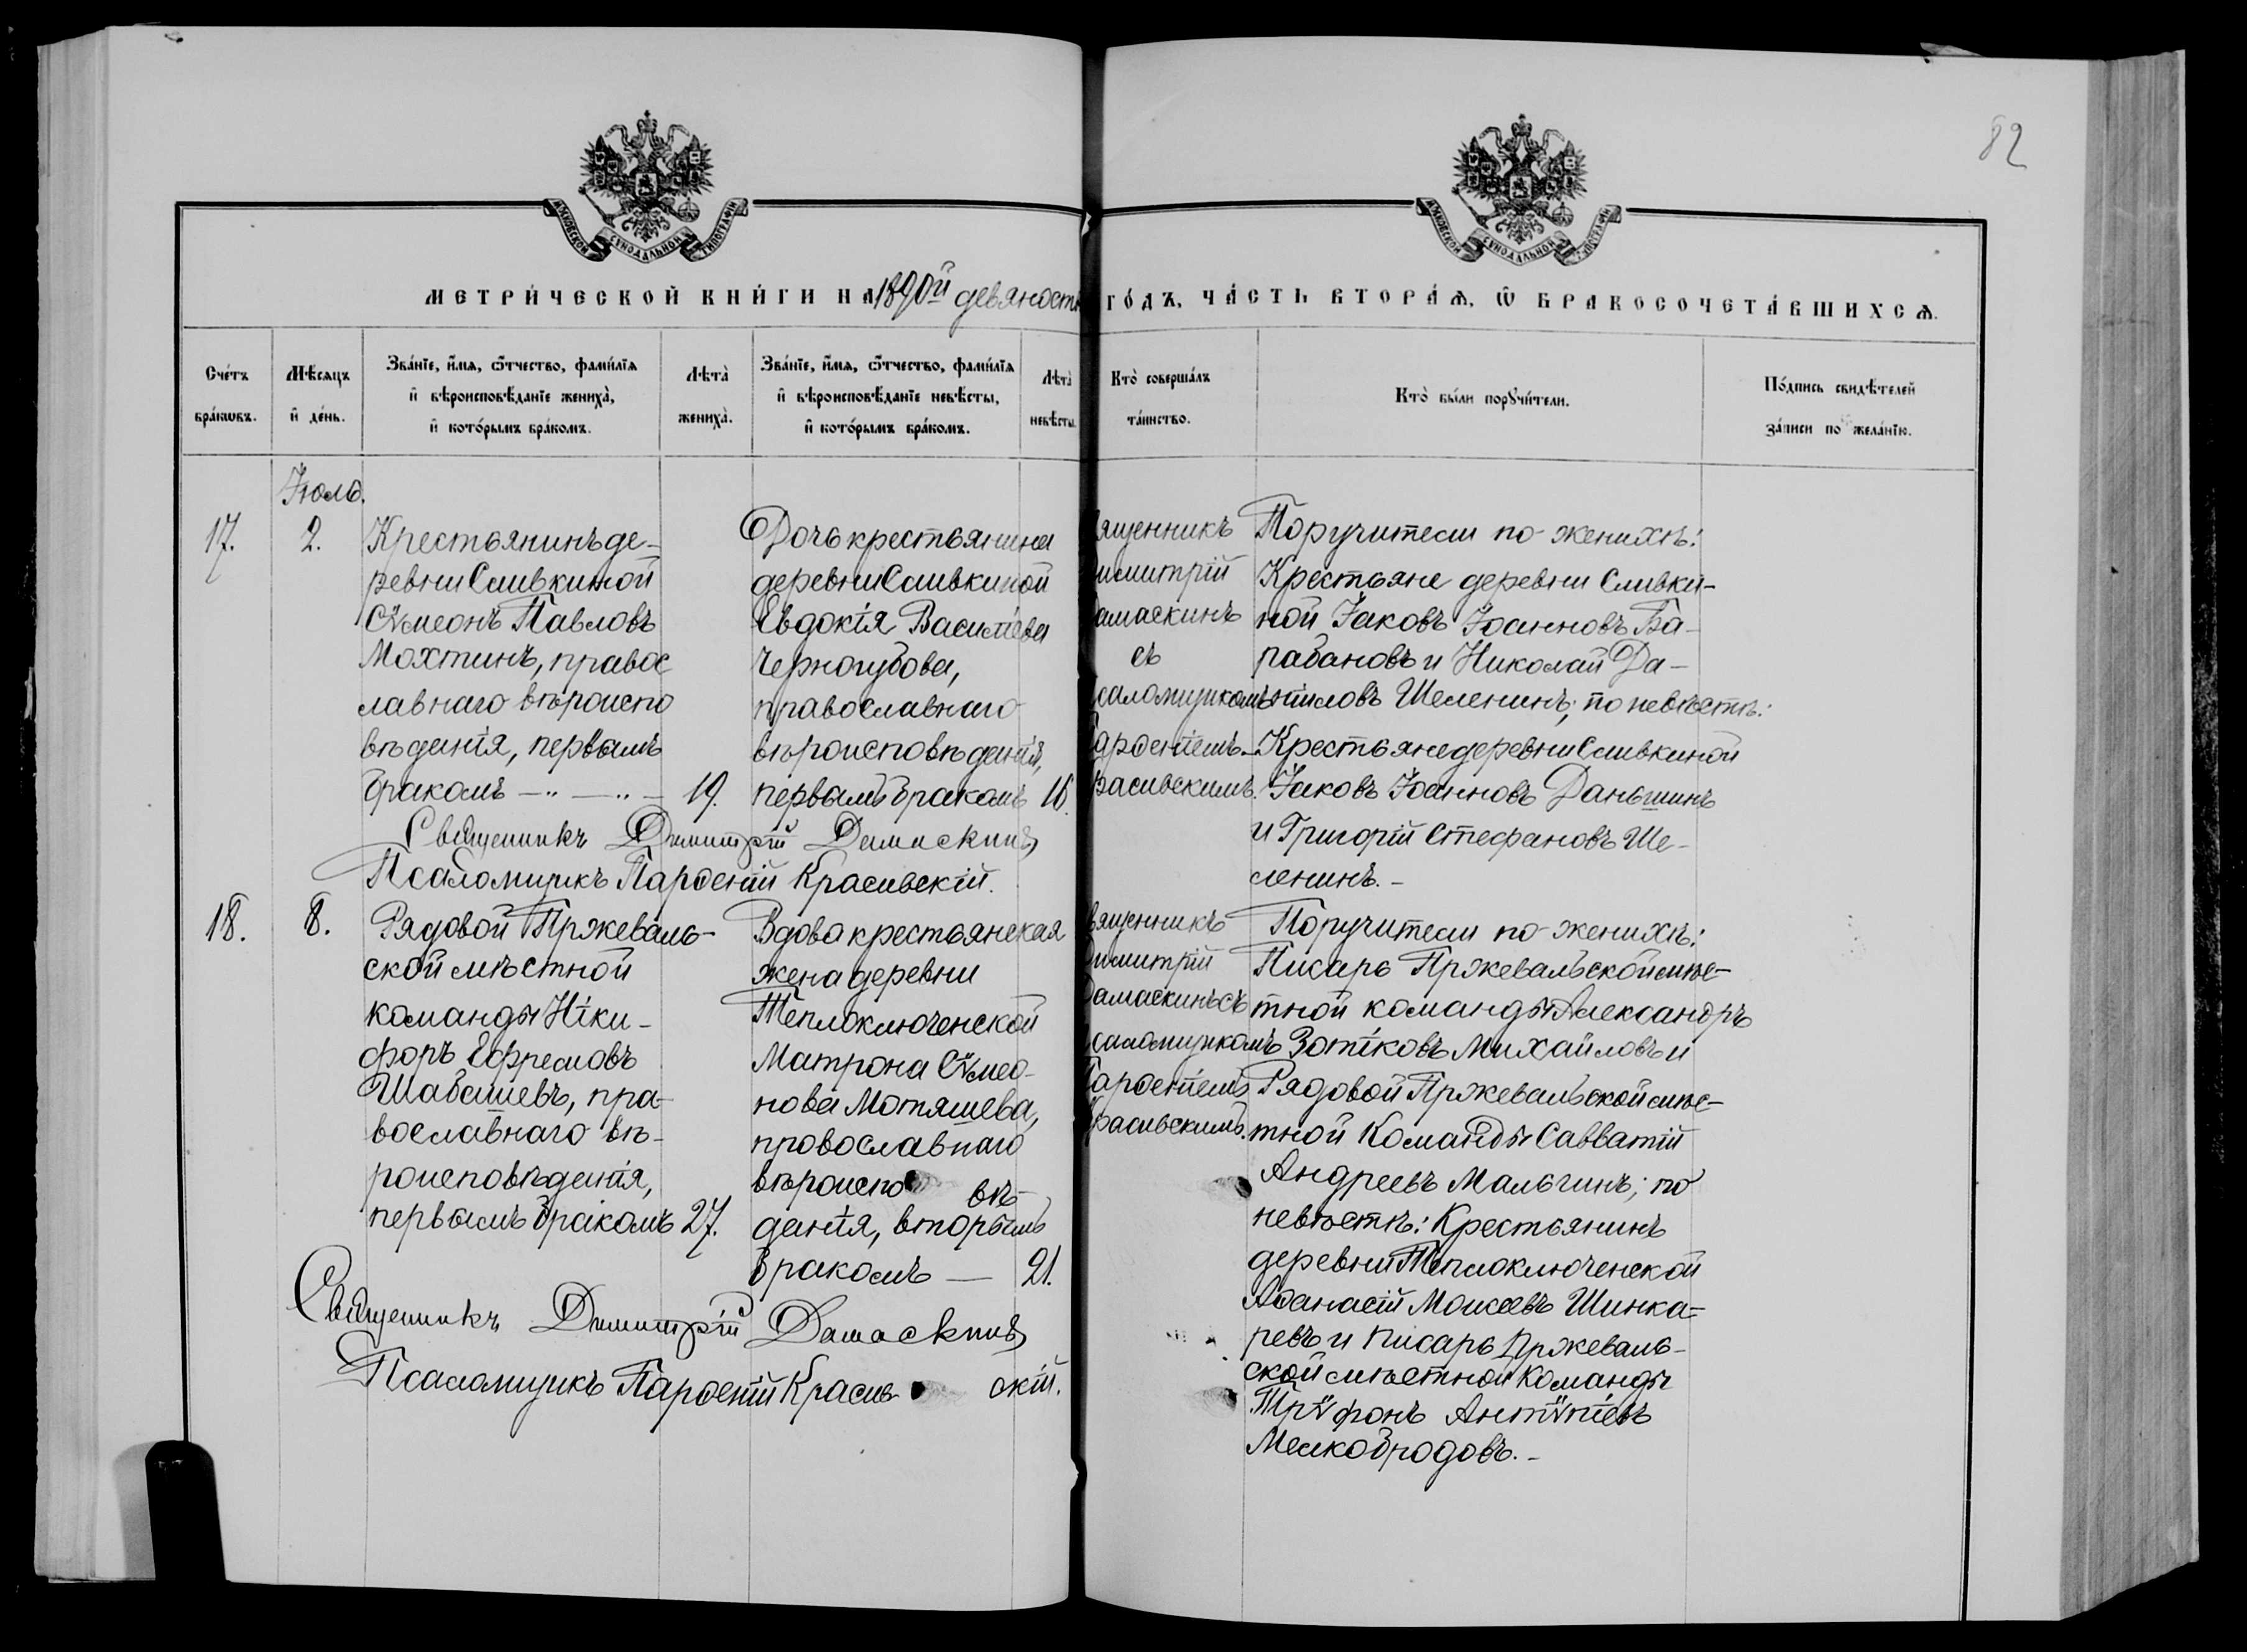 82
МОСКОВСКОЙ СѴНОДАЛЬНОЙ ТИПОГРАФІИ
МОСКОВСКОЙ СѴНОДАЛЬНОЙ ТИПОГРАФІИ
МЕТРИ́ЧЕСКОЙ КНИ́ГИ НА 1890й девяносты ГО́ДЪ, ЧА́СТЬ ВТОРА́Ѧ, Ѿ БРАКОСОЧЕТА́ВШИХСѦ.
Сче́тъ
бра́кѡвъ.
Мѣ́сяцъ
и҆ де́нь.
Зва́нїе, и҆́мѧ, ѻ҆́тчество, фами́лїѧ
и҆ вѣроисповѣ́данїе жениха̀,
и҆ кото́рымъ бра́комъ.
Лѣта̀
жениха̀.
Зва́нїе, и҆́мѧ, ѻ҆́тчество, фами́лїѧ
и҆ вѣроисповѣ́данїе невѣ́сты,
и҆ кото́рымъ бра́комъ.
Лѣта̀
невѣ́сты.
Кто̀ соверша́лъ
та́инство.
Кто̀ бы́ли порꙋчи́тели.
По́дпись свидѣ́телей
за́писи по жела́нїю.
Іюль.
17.
2.
Крестьянинъ де-
ревни Сливкиной
Сѵмеонъ Павловъ
Мохтинъ, правос
лавнаго вѣроиспо
вѣданія, первымъ
бракомъ — " — " —
19.
Дочь крестьянина
деревни Сливкиной
Евдокія Василіева
Черногубова,
православнаго
вѣроисповѣданія,
первымъ бракомъ
16.
ященникъ
имитрій
амаскинъ
съ
саломщикомъ
арѳеніемъ
расивскимъ.
Поручители по женихѣ:
Крестьяне деревни Сливки-
ной Іаковъ Іоанновъ Ба-
рабановъ и Николай Да-
ніиловъ Шеленинъ; по невѣстѣ:
Крестьяне деревни Сливкиной
Іаковъ Іоанновъ Даньшинъ
и Григорій Стефановъ Ше-
ленинъ. —
Священникъ Димитрій Дамаскинъ
Псаломщикъ Парѳеній Красивскій.
18.
8.
Рядовой Пржеваль-
ской мѣстной
команды Ники-
форъ Ефремовъ
Шабашевъ, пра-
вославнаго вѣ-
роисповѣданія,
первымъ бракомъ
27.
Вдова крестьянская
жена деревни
Теплоключенской
Матрона Сѵмео-
нова Мотяшева,
провославнаго
вѣроиспо вѣ-
данія, вторымъ
бракомъ —
21.
вященникъ
Димитрій
Дамаскинъ съ
саломщикомъ
Парѳеніемъ
Красивскимъ.
Поручители по женихѣ:
Писарь Пржевальской мѣс-
тной команды Александръ
Зотиковъ Михайловъ и
Рядовой Пржевальской мѣс-
тной Команды Савватій
Андреевъ Мальгинъ; по
невѣстѣ: Крестьянинъ
деревни Теплоключенской
Аѳанасій Моисеевъ Шинка-
ревъ и писарь Пржеваль-
ской мѣстной Команды
Трѵфонъ Антѵпіевъ
Мелкобродовъ. —
Священникъ Димитрій Дамаскинъ
Псаломщикъ Парѳеній Красив скій.